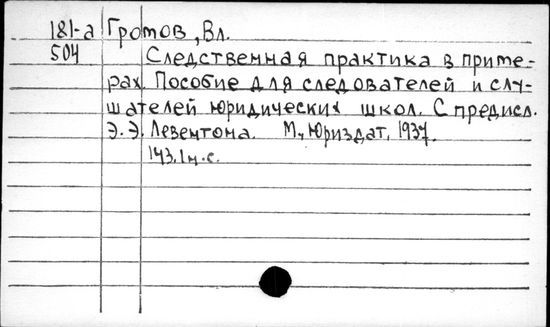 181-а Громов, Вл.
504 Следственная практика в приме-
рах. Пособие для следователей и слу-
шателей юридических школ. С предисл.
Э. Э. Левентона. М., Юриздат, 1937.
143, 1 н.с.